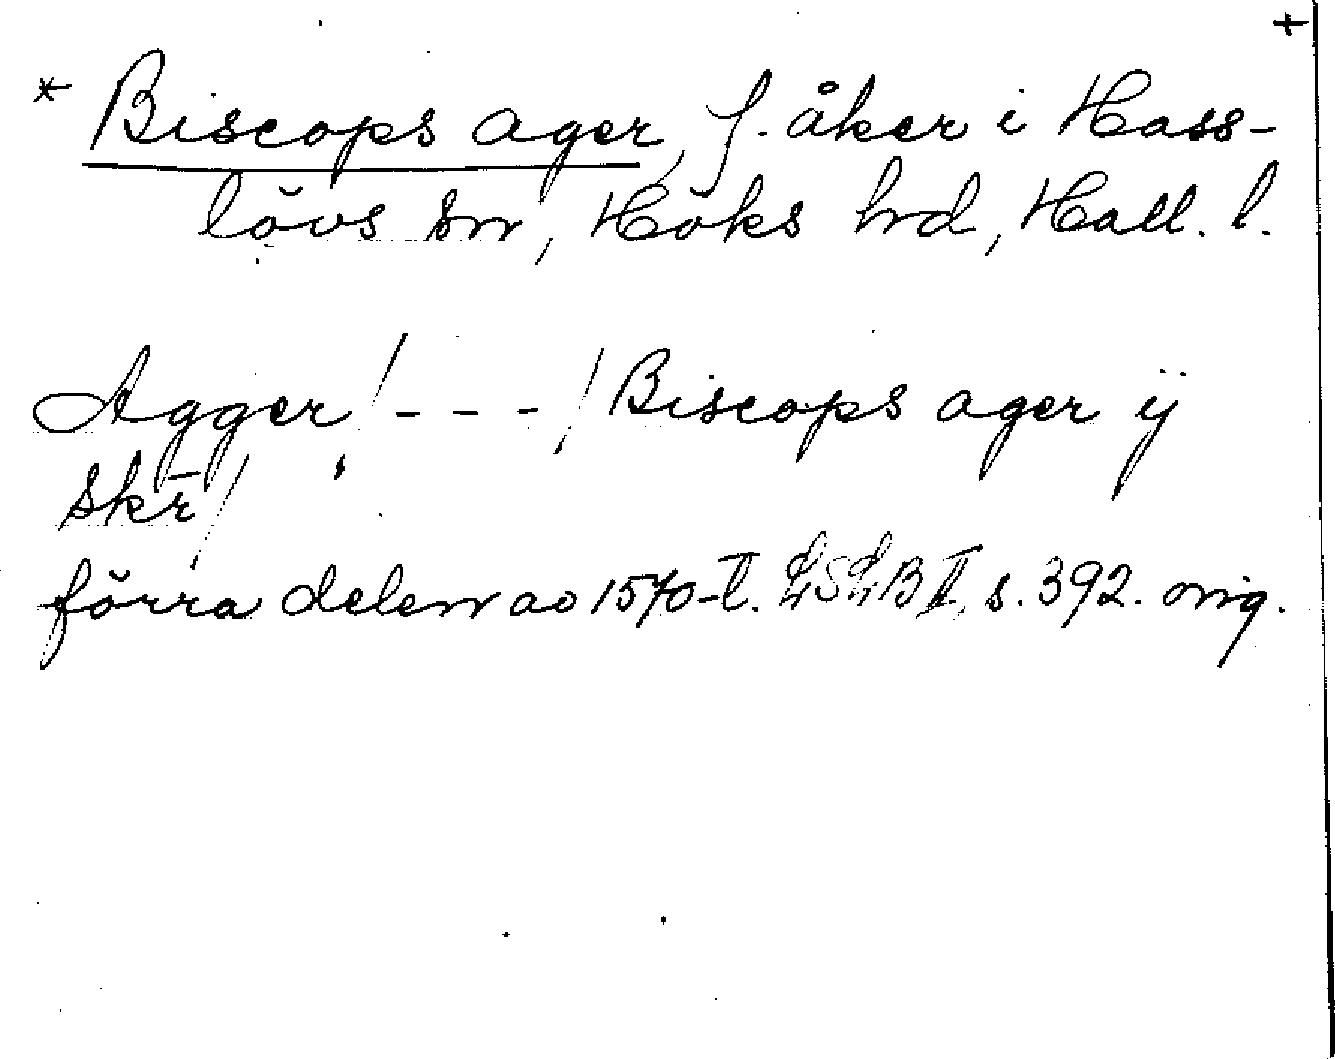 +
* Biscops ager, f. åker i Hass-
lövs sn, Höks hrd, Hall. l.
Agger / - - - / Biscops ager ÿ
skr̄ /
förra delen av 1570-t. LSLB II, s. 392. orig.